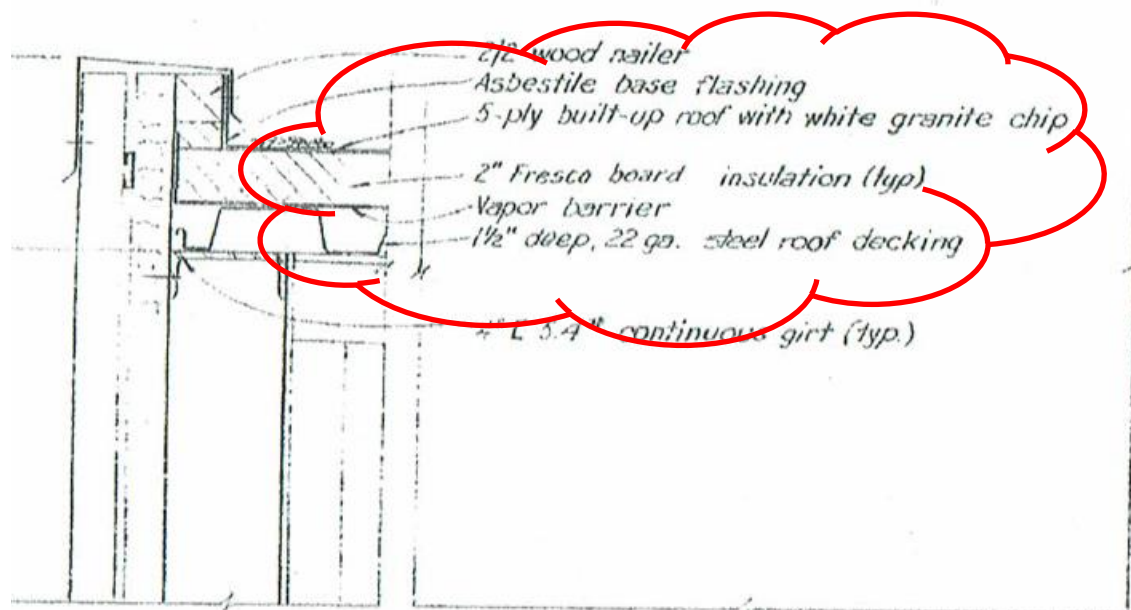 wood nailer
Asbestile base flashing
5-ply built-up roof with white granite chip
2" Fresco board insulation (typ)
Vapor barrier
1½" deep, 22 ga. steel roof decking
4" [ 5.4# continuous girt (typ.)